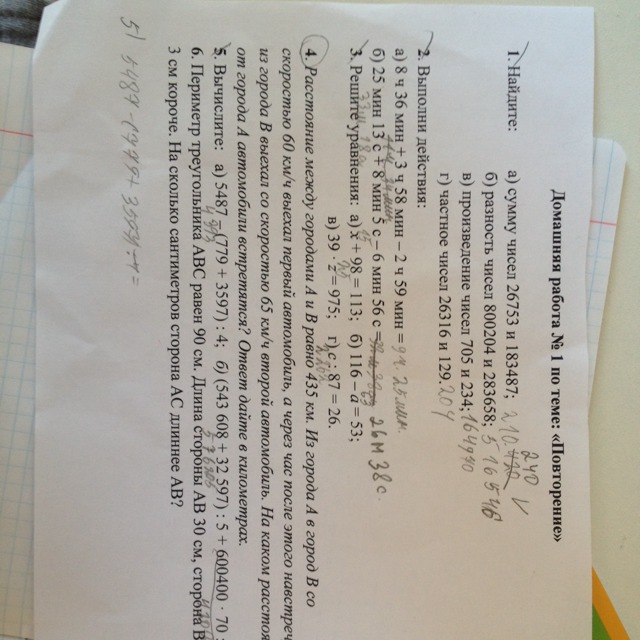 Домашняя работа № 1 по теме: «Повторение»
1. Найдите: а) сумму чисел 26753 и 183487; 210 240
б) разность чисел 800204 и 283658; 516546
в) произведение чисел 705 и 234; 164970
г) частное чисел 26316 и 129. 204
2. Выполни действия:
а) 8 ч 36 мин + 3 ч 58 мин – 2 ч 59 мин = 9 ч. 25 мин.
б) 25 мин 13 с + 8 мин 5 с – 6 мин 56 с = 26 м 38 с.
3. Решите уравнения: а) x + 98 = 113; б) 116 – a = 53;
в) 39 · z = 975; г) c : 87 = 26.
4. Расстояние между городами А и В равно 435 км. Из города А в город В со
скоростью 60 км/ч выехал первый автомобиль, а через час после этого навстреч
из города В выехал со скоростью 65 км/ч второй автомобиль. На каком расстоя
от города А автомобили встретятся? Ответ дайте в километрах.
5. Вычислите: а) 5487 – (779 + 3597) : 4; б) (543 608 + 32 597) : 5 + 600400 · 70
6. Периметр треугольника АВС равен 90 см. Длина стороны АВ 30 см, сторона В
3 см короче. На сколько сантиметров сторона АС длиннее АВ?